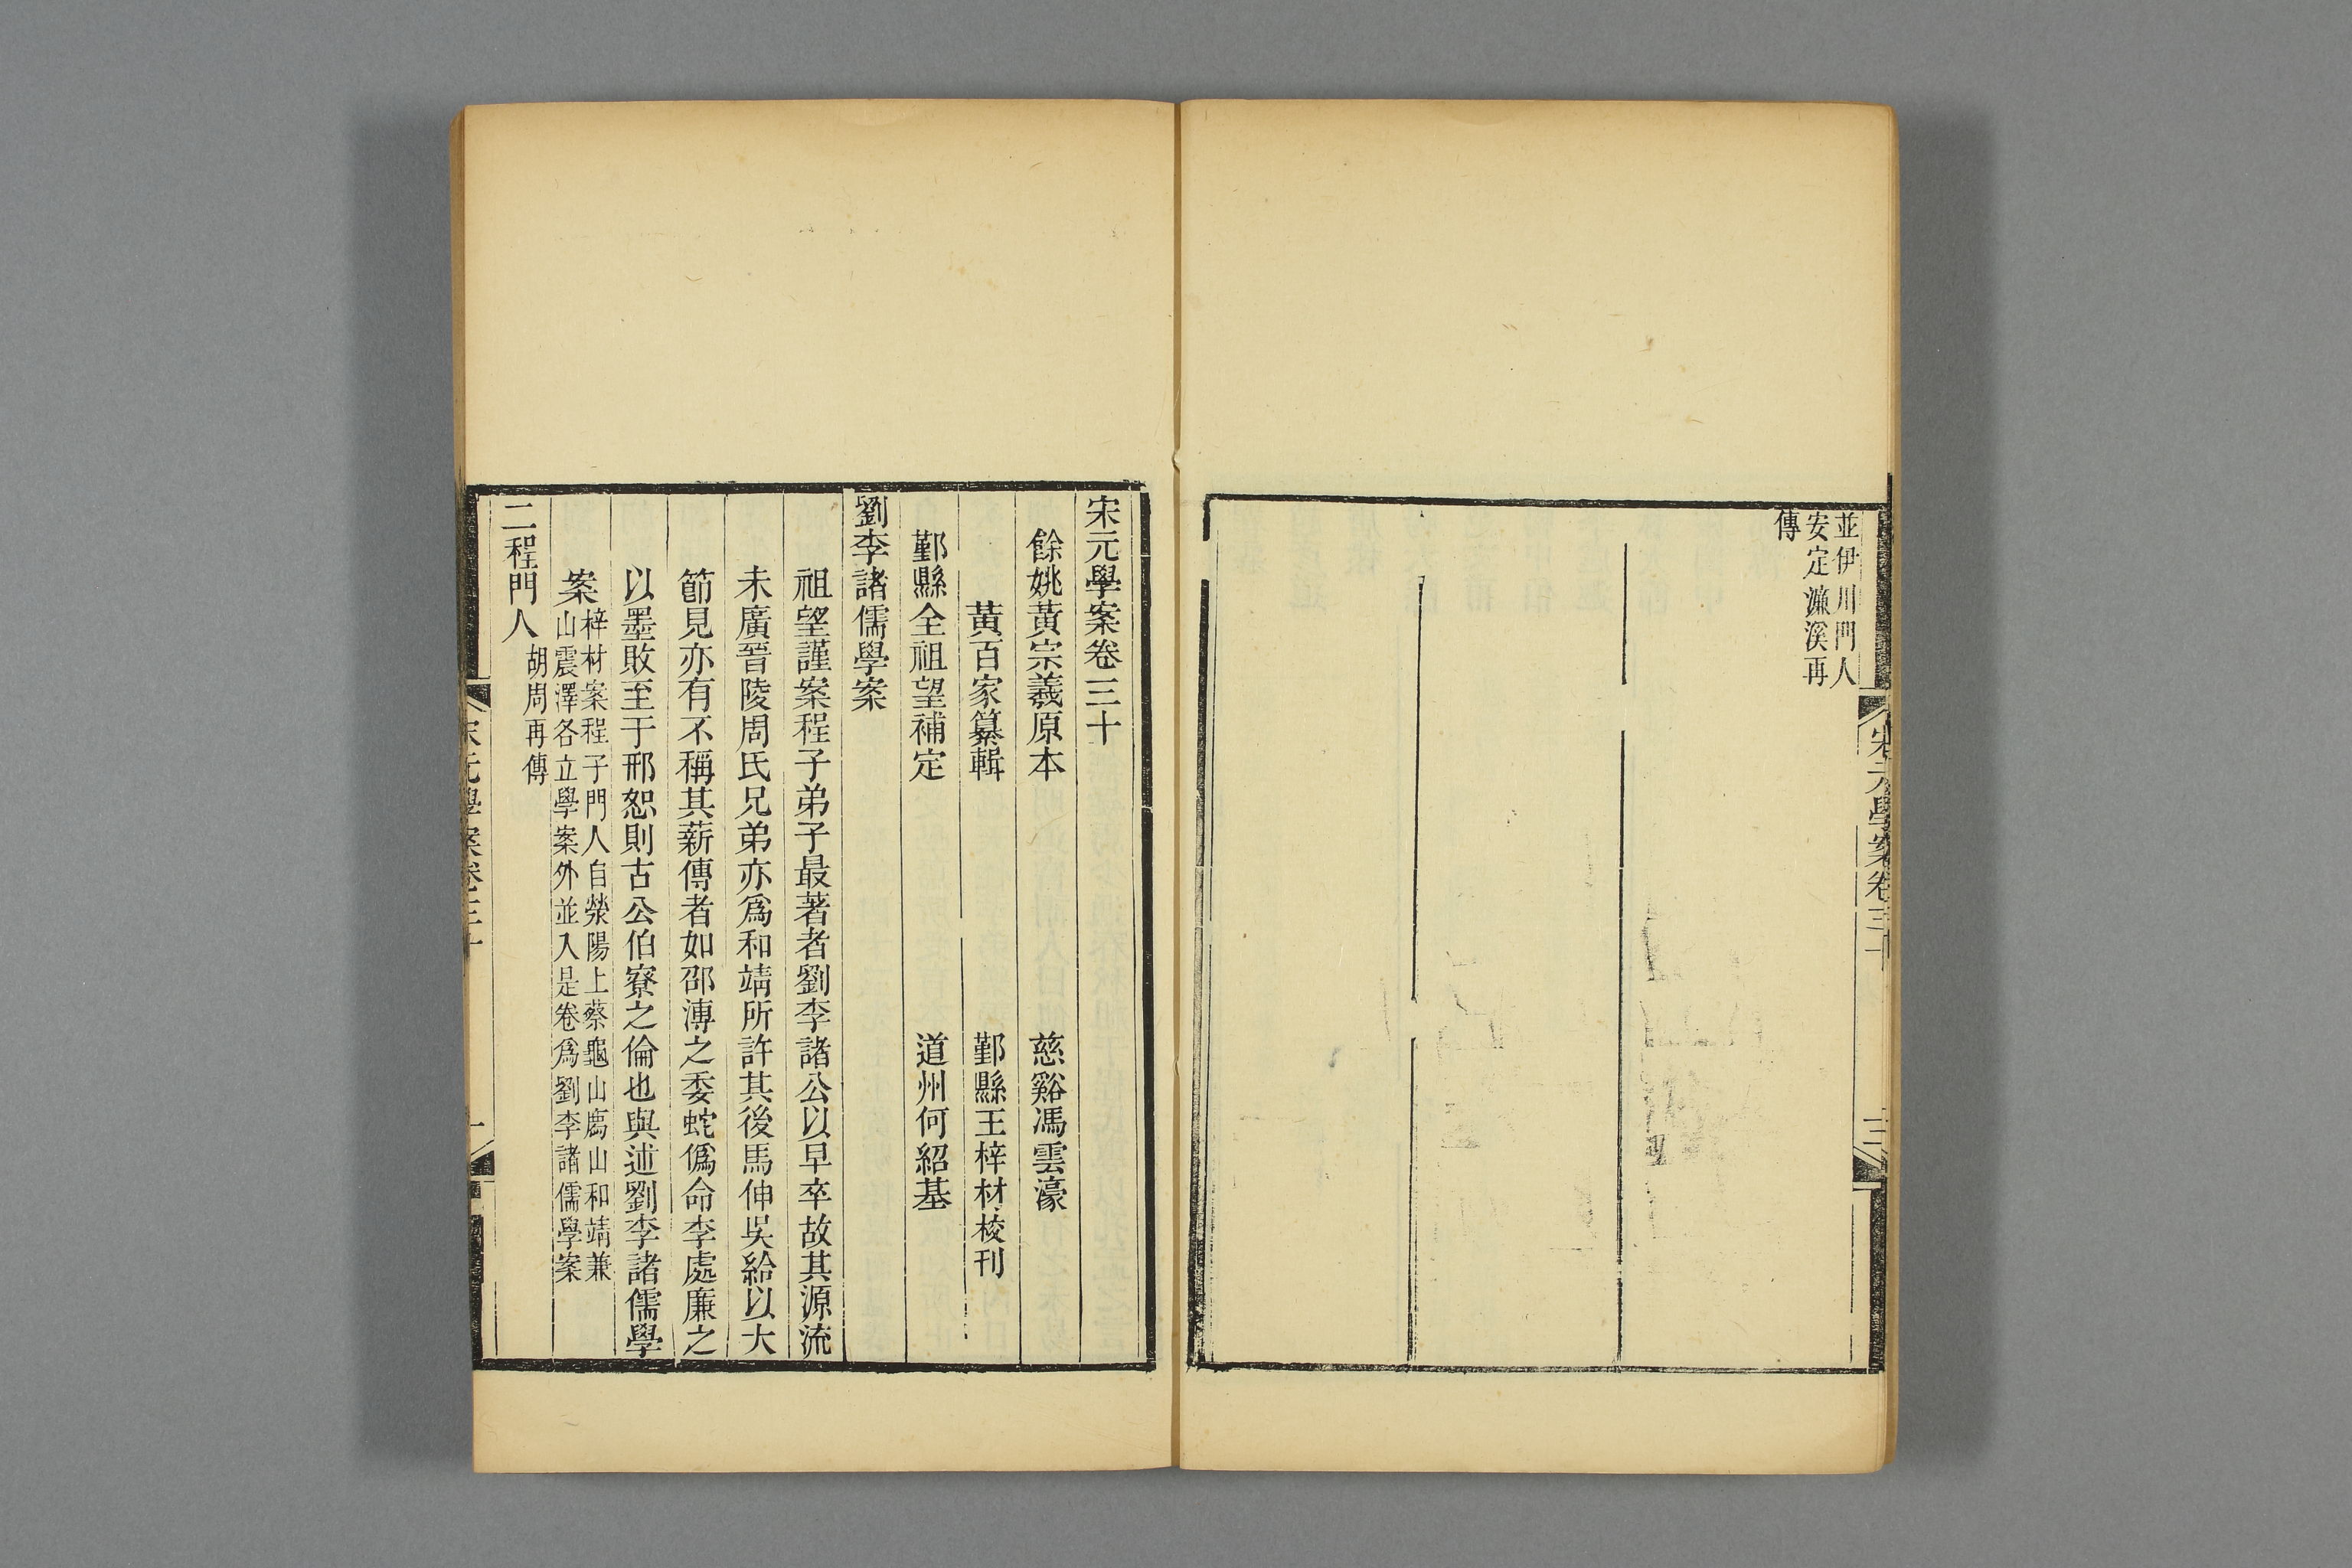 並伊川門人
安定濂溪再
傳
宋元學案卷三十
宋元學案卷三十
餘姚黃宗羲原本 慈谿馮雲濠
黃百家纂輯 鄞縣王梓材校刊
鄞縣全祖望補定 道州何紹基
劉李諸儒學案
祖望謹案程子弟子最著者劉李諸公以早卒故其源流
未廣晉陵周氏兄弟亦爲和靖所許其後馬伸吳給以大
節見亦有不稱其薪傳者如邵溥之委蛇僞命李處廉之
以墨敗至于邢恕則古公伯寮之倫也與述劉李諸儒學
案梓材案程子門人自滎陽上蔡龜山廌山和靖兼
山震澤各立學案外並入是卷爲劉李諸儒學案
二程門人胡周再傳
宋元學案卷三十 一